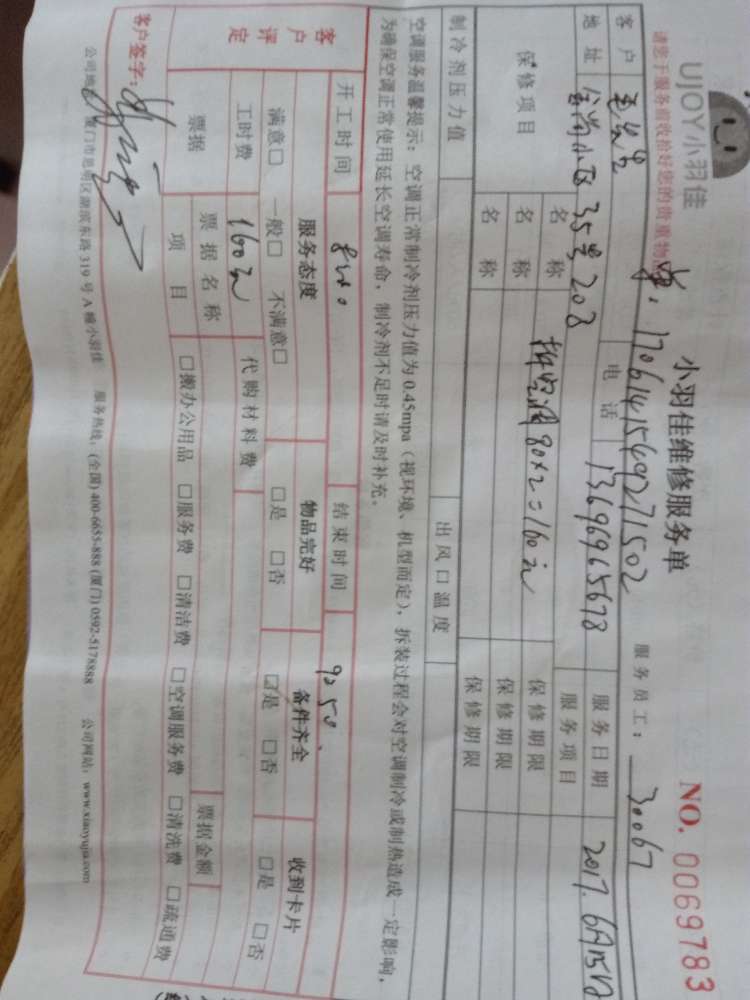 UJOY小羽佳
小羽佳维修服务单
NO. 0069783
请您于服务前收拾好您的贵重物
单: 1706141549271502
服务员工: 30067
客户
电话 13696965678
服务日期 2017.6月15日
地址 小区35号203
服务项目
保修项目
名称 拆空调80×2=160元
保修期限
名称
保修期限
名称
保修期限
制冷剂压力值
出风口温度
空调服务温馨提示: 空调正常制冷剂压力值为0.45mpa(视环境、机型而定),拆装过程会对空调制冷或制热造成一定影响,
为确保空调正常使用延长空调寿命,制冷剂不足时请及时补充。
开工时间
结束时间 9:50
客户评定
服务态度
物品完好
备件齐全
收到卡片
满意□ 一般□ 不满意□
□是 □否
□是 □否
□是 □否
工时费 160元
代购材料费
票据
票据名称
票据金额
项目
□搬办公用品 □服务费 □清洁费 □空调服务费 □清洗费 □疏通费
客户签字:
公司地址: 厦门市思明区湖滨东路319号A幢小羽佳 服务热线: (全国) 400-6655-888 (厦门) 0592-5178888 公司网站: www.xiaoyujia.com